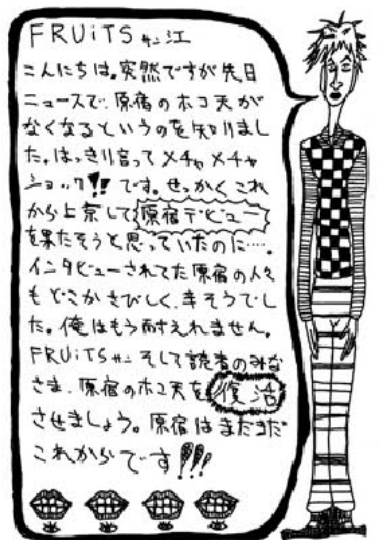 FRUiTSサン江
こんにちは。突然ですが先日
ニュースで、原宿のホコ天が
なくなるというのを知りまし
た。はっきり言ってメチャメチャ
ショック!!です。せっかくこれ
から上京して原宿デビュー
を果たそうと思っていたのに……。
インタビューされてた原宿の人々
もどこかさびしく、辛そうでし
た。俺はもう耐えれません。
FRUiTSサンそして読者のみな
さま、原宿のホコ天を復活
させましょう。原宿はまだまだ
これからです!!!